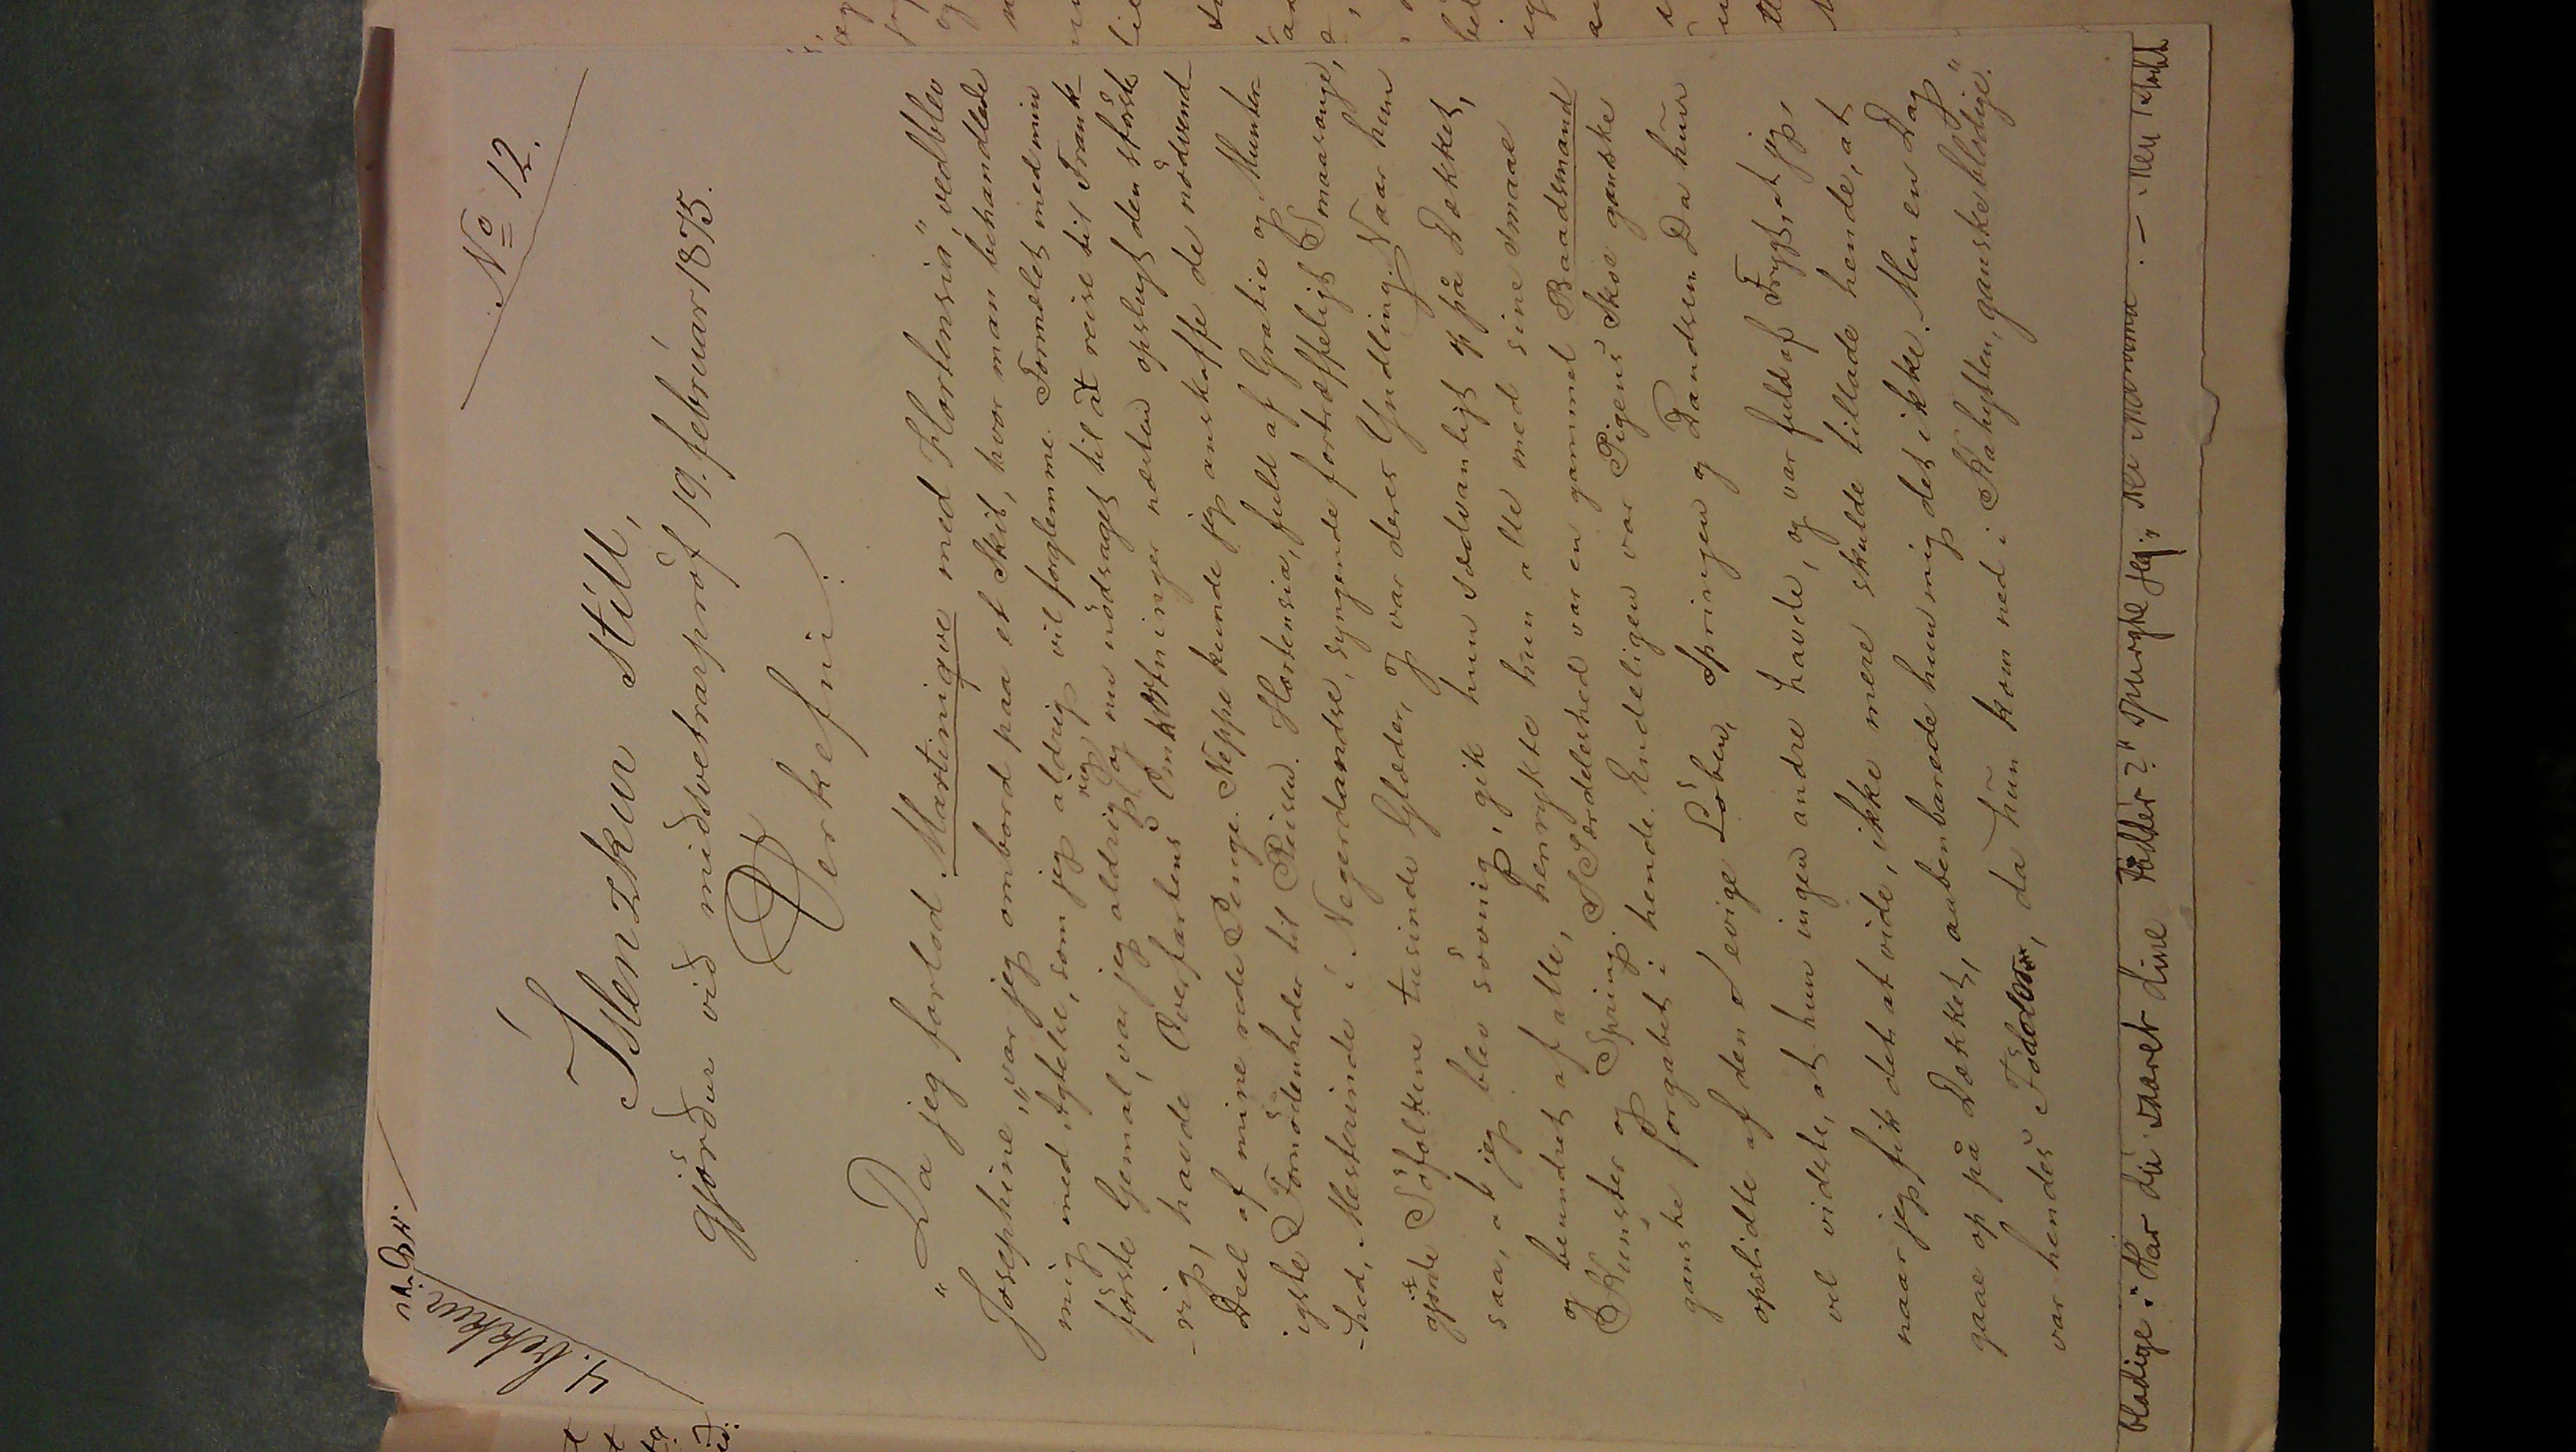 4. bekkur.
No 12.
Íslenzkur stíll,
gjörður við miðsvetrarpróf 19. februar 1875.
Verkefni:
"Da jeg forlod Martinique med Hortensia" vedblev
Josephine, "var jeg ombord paa et Skib, hvor man behandlede
mig med Agtelse, som jeg aldrig vil forglemme. Formælet med min
förste Gemal, var jeg aldrig rig og nu nödsaget til at reise til Frank-
-rig, havde Overfartens Omkostninger næsten opslugt den störste
Deel af mine rede Penge. Neppe kunde jeg anskaffe de nödvend-
igste Fornödenheder til Reisen. Hortensia, fuld af Gratie og Munter-
-hed, Mesterinde i Negerdandse, syngende fortræffeligt Smaasange,
gjorde Söfolkene tusinde Glæder, og var deres Yndling. Naar hun
saa, at jeg blev sövnig, gik hun sædvanligt op på Dækket,
og beundret af alle, henrykte hun alle med sine smaae
Kunster og Spring. I Særdeleshed var en gammel Baadsmand
ganske forgabet i hende. Endeligen var Pigens Skoe ganske
opslidte af den evige Löben, Springen og Dandsen. Da hun
vel vidste, at hun ingen andre havde, og var fuld af Frygt, at jeg,
naar jeg fik det at vide, ikke mere skulde tillade hende, at
gaae op på Dækket, aabenbarede hun mig det ikke. Men en Dag
var hendes Födder, da hun kom ned i Kahytten, ganske blodige."
blodige: Har du saaret dine Födder?" spurgte jeg. "Nei Mamma." – "Men